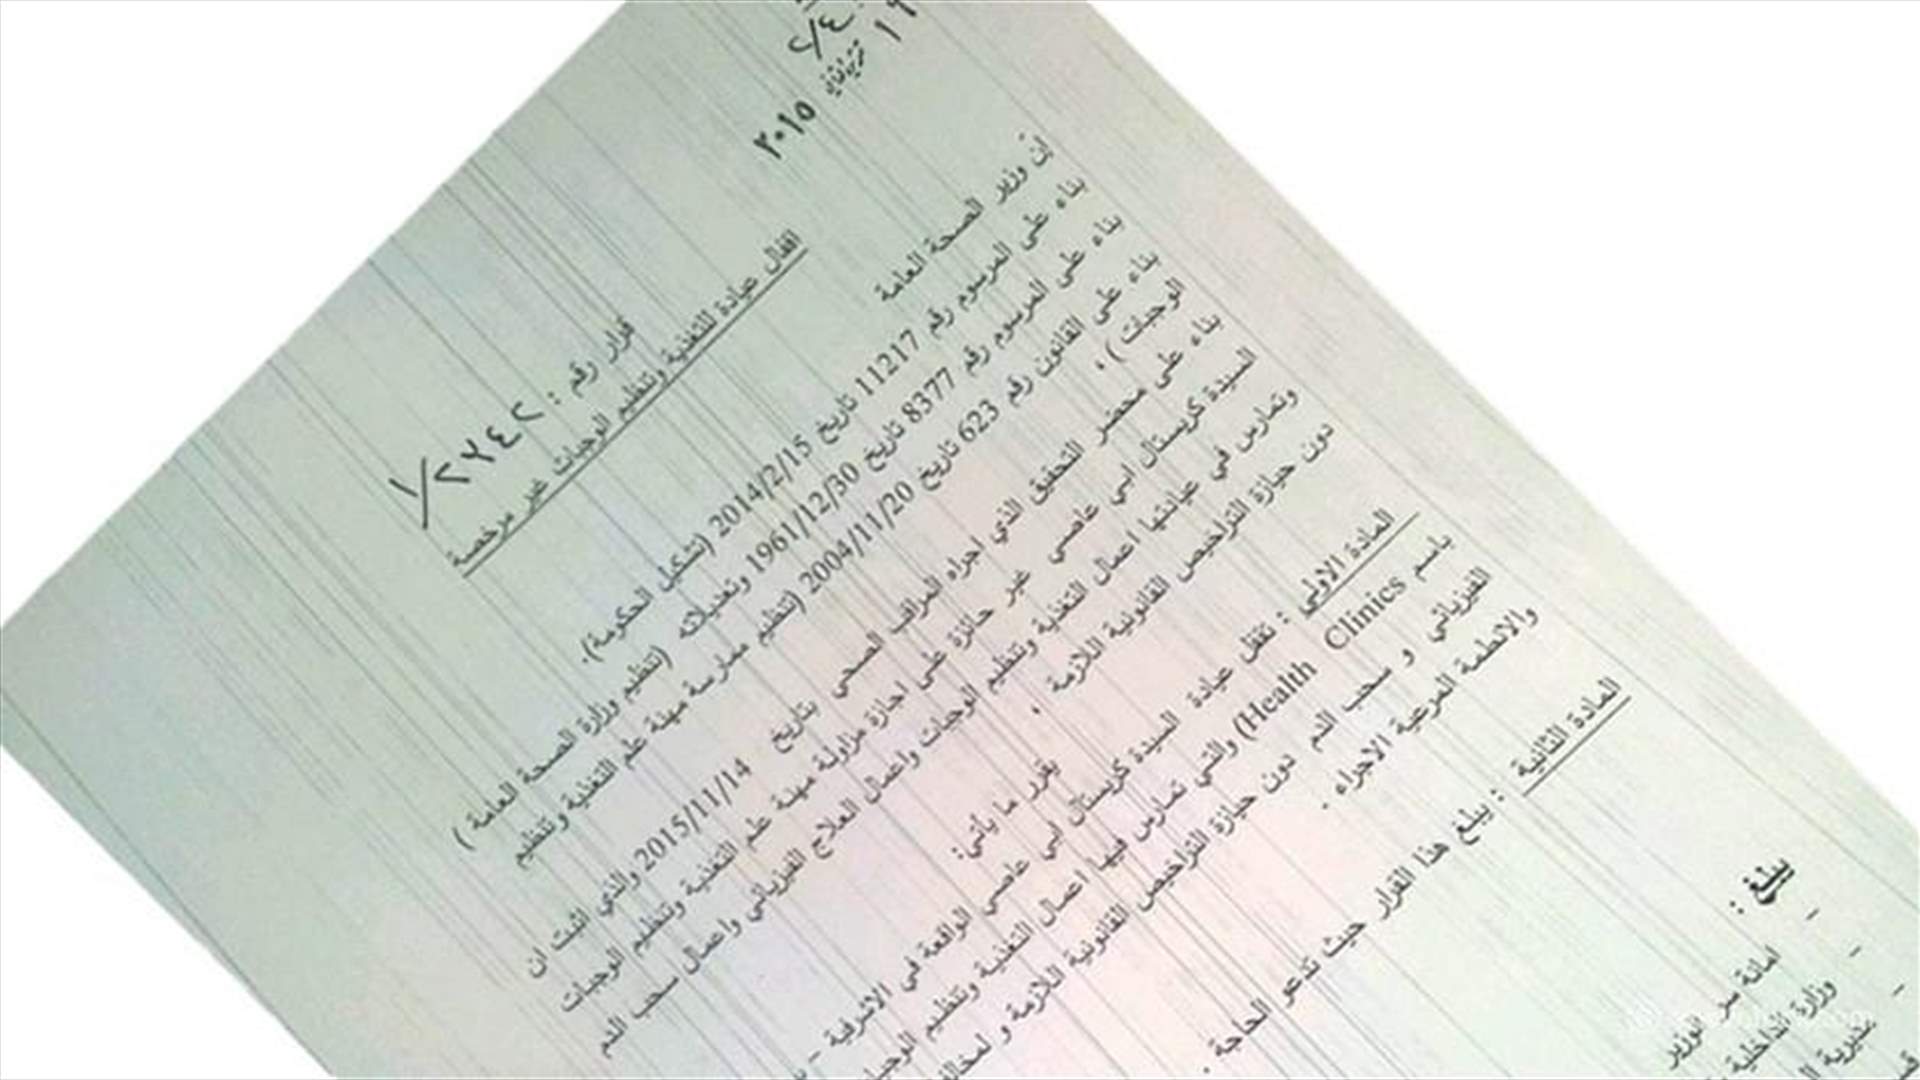 ١٩
تشرين الثاني ٢٠١٥
قرار رقم : ١/٢٢٤٢
اقفال عيادة للتغذية وتنظيم الوجبات غير مرخصة
إن وزير الصحة العامة
بناء على المرسوم رقم 11217 تاريخ 2014/2/15 (تشكيل الحكومة).
بناء على المرسوم رقم 8377 تاريخ 1961/12/30 وتعديلاته (تنظيم وزارة الصحة العامة )
بناء على القانون رقم 623 تاريخ 2004/11/20 (تنظيم ممارسة مهنة علم التغذية وتنظيم
الوجبات) ،
بناء على محضر التحقيق الذي اجراه المراقب الصحي بتاريخ 2015/11/14 والذي اثبت ان
السيدة كريستال ابي عاصي غير حائزة على اجازة مزاولة مهنة علم التغذية وتنظيم الوجبات
وتمارس في عيادتها اعمال التغذية وتنظيم الوجبات واعمال العلاج الفيزيائي واعمال سحب الدم
دون حيازة التراخيص القانونية اللازمة ،
يقرر ما يأتي:
المادة الاولى : تقفل عيادة السيدة كريستال ابي عاصي الواقعة في الاشرفية -
باسم Health Clinics) والتي تمارس فيها اعمال التغذية وتنظيم
الفيزيائي و سحب الدم دون حيازة التراخيص القانونية اللازمة و
والانظمة المرعية الاجراء .
المادة الثانية : يبلغ هذا القرار حيث تدعو الحاجة .
يبلغ :
- امانة سر الوزير
- وزارة الداخلية
- مديرية